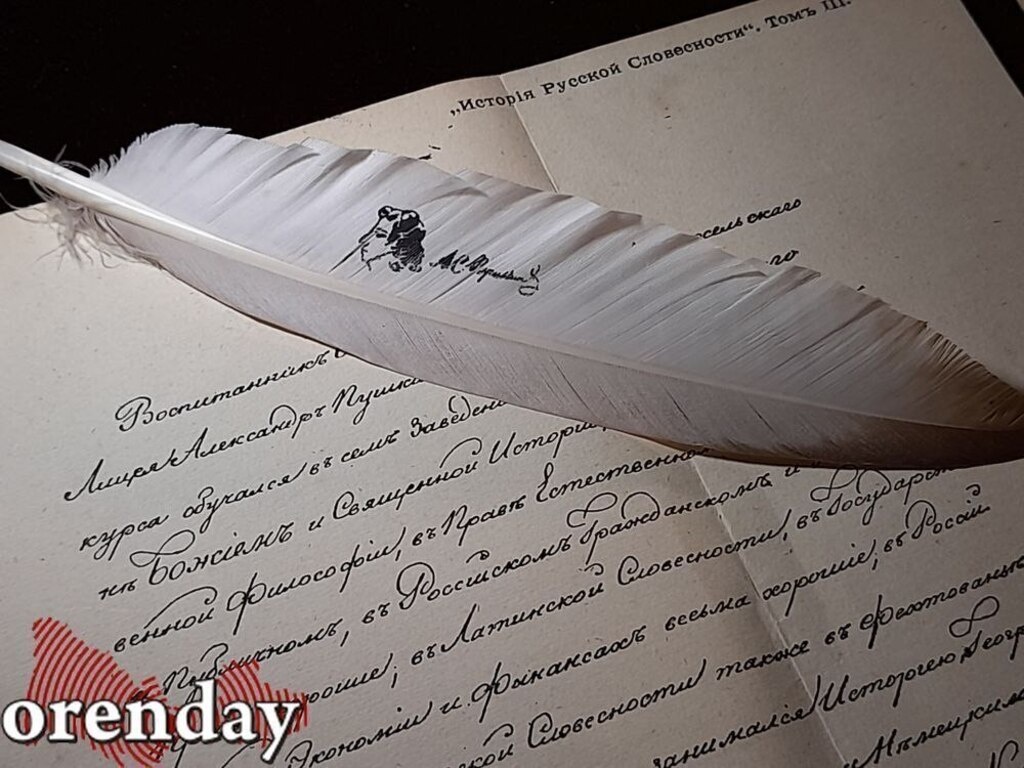 „Исторія Русской Словесности“. Томъ III.
сельскаго
го
Воспитанникъ
Лицея Александръ Пушки
курса обучался въ семъ Заведені
нѣ Божіемъ и Священной Исторіи,
венной Философіи, въ Правѣ Естественно
Публичномъ, въ Россійскомъ Гражданскомъ и
рошіе; въ Латинской Словесности, въ Государст
Экономіи и Финансахъ весьма хорошіе, въ Россій
ской Словесности также въ Фехтованьѣ
занимался Исторіею Геогр
Нѣмецкимъ
А.С.Пушкин
orenday